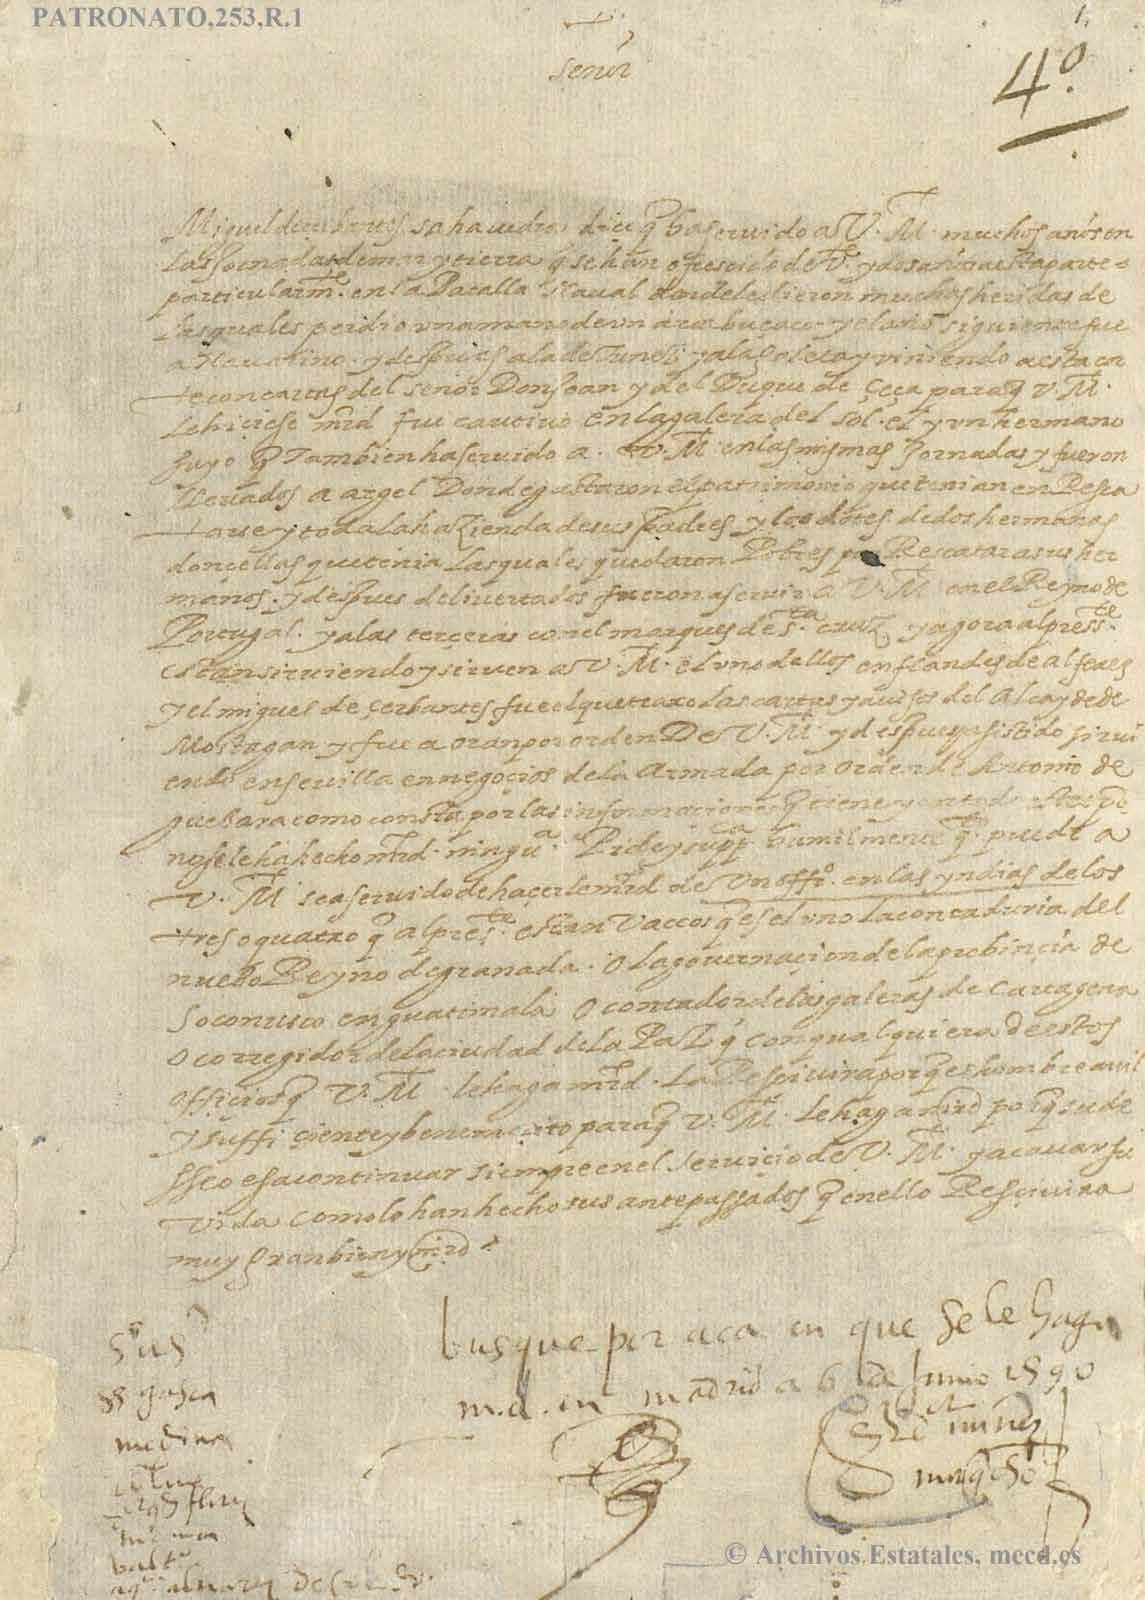 PATRONATO,253,R.1
1.
Señor
4º
Miguel de cerbantes sahavedra dize q̃ ha seruido a V. M. muchos años en
las Jornadas de mar y tierra q̃ se han ofrescido de a esta parte
particularmte. en la Batalla Naual donde le dieron muchas heridas de
las quales perdio vna mano de vn arcabuçaço y el año siguiente fue
a Nauarino y despues a la de Tunez y a la goleta y viniendo a esta cor
te con cartas del señor Don Joan y del Duque de çeça para q̃ V. M.
le hiciese mrd fue cautiuo en la galera del sol el y vn hermano
suyo q̃ Tambien ha seruido a V. M. en las mismas Jornadas y fueron
lleuados a argel Donde gastaron el patrimonio que tenian en Resca
tarse y toda la hazienda de sus padres y los dotes de dos hermanas
doncellas que tenia las quales quedaron Pobres por Rescatar a sus her
manos y despues de liuertados fueron a seruir a V. M. en el Reyno de
Portugal y a las terceras con el marques de sta. cruz y agora al presste.
estan siruiendo y siruen a V. M. el vno dellos en flandes de alferes
y el miguel de çerbantes fue el que traxo las cartas y auisos del Alcayde de
Mostagan y fue a oran por orden De V. M. y despues asistido sirui
endo en seuilla en negoçios de la Armada por orden de Antonio de
gueuara como consta por las informaciones q̃ tiene y en todo este tpo.
no se le ha hecho mrd ningua. Pide y suppca. humilmente quto. puede a
V. M. sea seruido de haçerle mrd de vn offio. en las yndias de los
tres o quatro q̃ al preste. estan Vaccos q̃ es el vno la contaduria del
nuebo Reyno de granada o la gouernaçion de la probinçia de
Soconusco en guatimala o contador de las galeras de cartagena
o corregidor de la ciudad de la Paz q̃ con qualquiera de estos
officios q̃ V. M. le haga mrd. La Resciuira porq̃ es hombre auil
y suffiçiente y benemerito para q̃ V. M. le haga mrd porq̃ su de
sseo es a continuar siempre en el seruiçio de V. M. y acauar su
vida como lo han hecho sus antepassados q̃ en ello Resciuira
muy gran bien y mrd
busque por aca en que se le haga
md. en madrid a 6 de Junio 1590
El dor nuñez
morqcho
gasca
medina
© Archivos Estatales, mecd.es